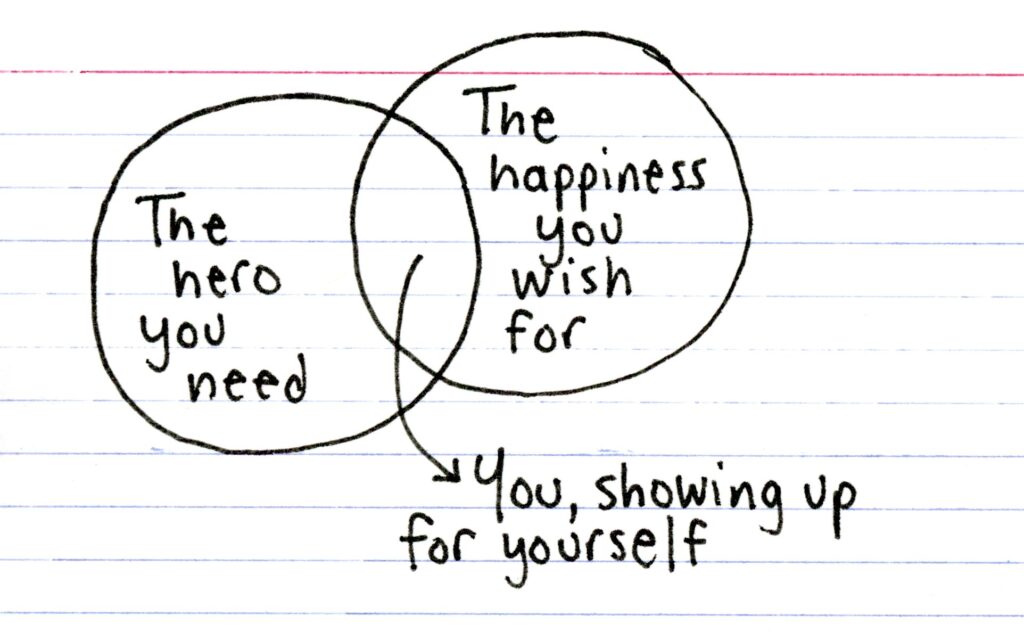 The
hero
you
need
The
happiness
you
wish
for
You, showing up
for yourself